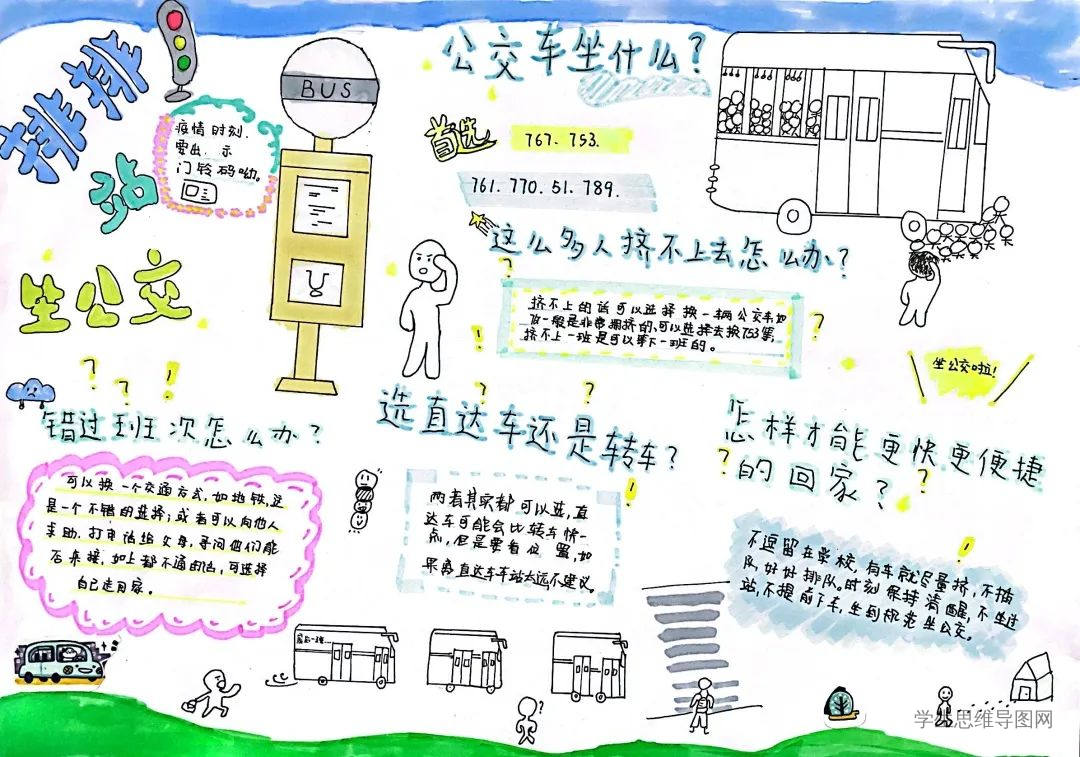 排排
站
坐公交
疫情时刻.
要出.示
门铃码呦。
BUS
公交车坐什么?
首选
767. 753.
761. 770. 51. 789.
这么多人挤不上去怎么办?
挤不上的话可以选择换一辆公交车如
一般是非常拥挤的、可以选择去换753等,
挤不上一班是可以乘下一班的。
坐公交啦!
错过班次怎么办?
可以换一个交通方式,如地铁,这
是一个不错的选择;或者可以向他人
求助.打电话给父母,寻问他们能
否来接,如上都不通的话,可选择
自己走回家。
选直达车还是转车?
两者其实都可以选,直
达车可能会比转车快一
点,但是要看位置,如
果离直达车车站太远不建议。
怎样才能更快更便捷
的回家?
不逗留在学校,有车就尽量挤,不插
队,好好排队.时刻保持清醒,不坐过
站,不提前下车,坐到规范坐公交。
最后一班
学生思维导图网